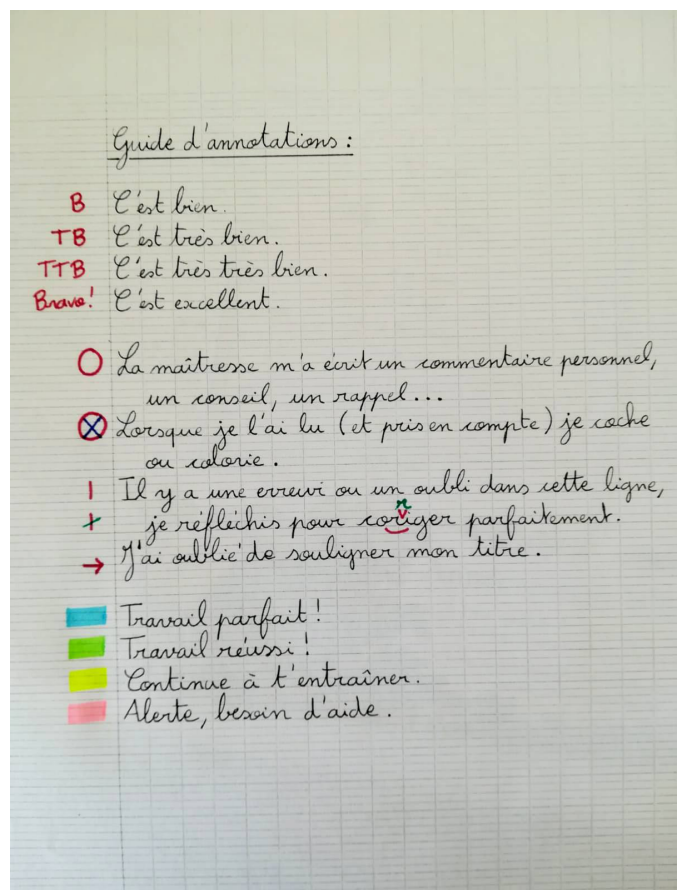 Guide d'annotations :
B C'est bien.
TB C'est très bien.
TTB C'est très très bien.
Bravo! C'est excellent.
La maîtresse m'a écrit un commentaire personnel,
un conseil, un rappel...
Lorsque je l'ai lu (et pris en compte) je coche
ou colorie.
| Il y a une erreur ou un oubli dans cette ligne,
r
+ je réfléchis pour coriger parfaitement.
→ J'ai oublié de souligner mon titre.
Travail parfait !
Travail réussi !
Continue à t'entraîner.
Alerte, besoin d'aide.